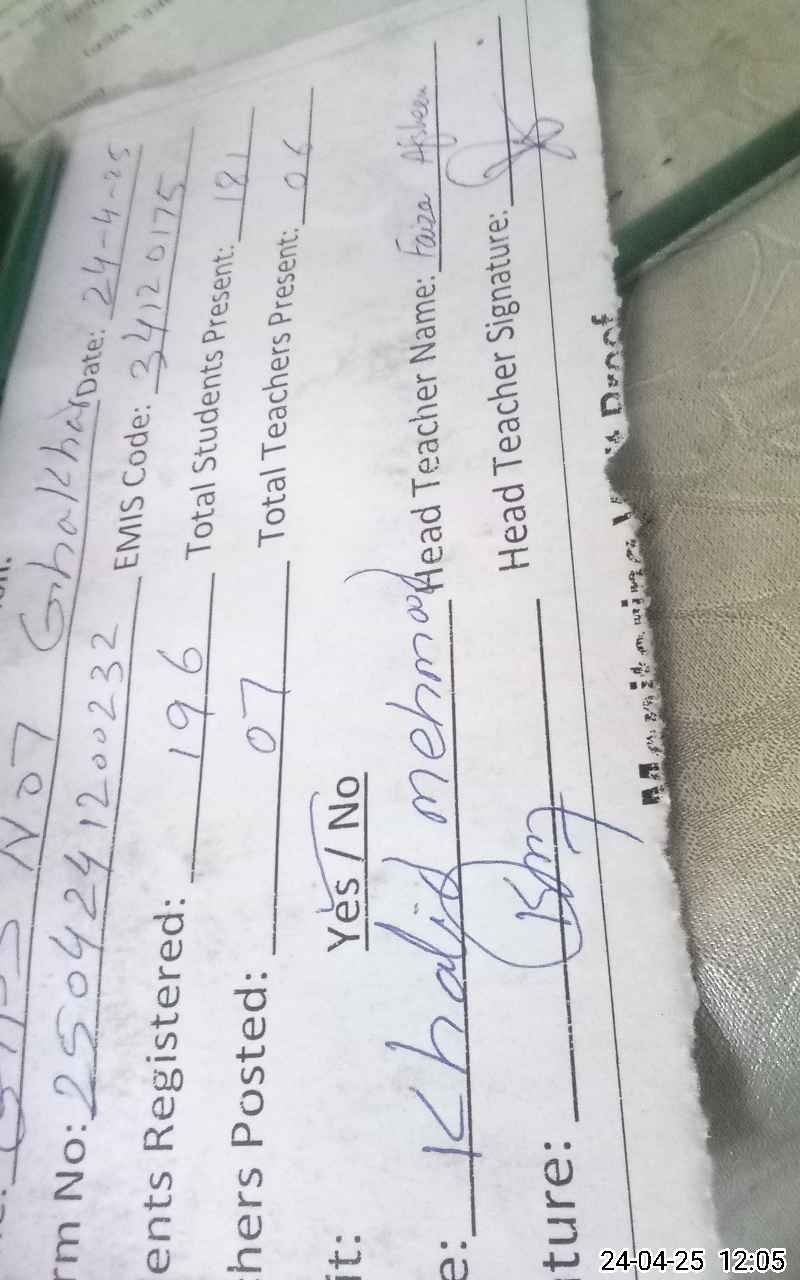 No7 Ghakhar Date: 24-4-25
rm No: 25042412 00232 EMIS Code: 34120175
ents Registered: 196 Total Students Present: 181
hers Posted: 07 Total Teachers Present: 06
it: Yes / No
e: Khalid mehmood Head Teacher Name: Faiza Afsheen
ture: Head Teacher Signature:
Proof
24-04-25 12:05